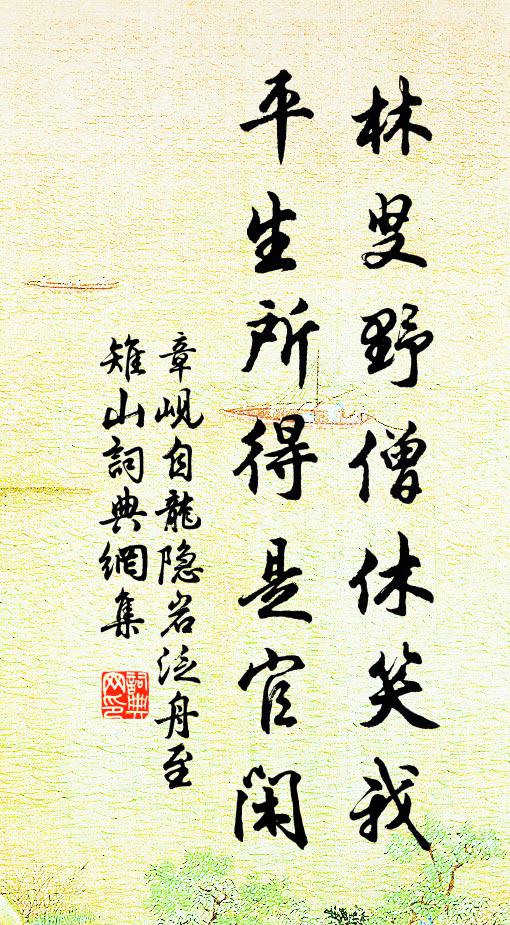 林叟野僧休笑我
平生所得是官閑
章岘自龍隐岩泛舟至
雉山詞典網集
詞典
网印